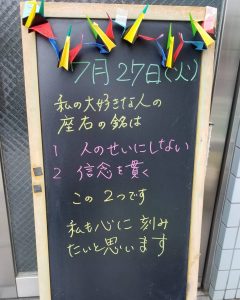 7月27日(火)
私の大好きな人の
座右の銘は
1 人のせいにしない
2 信念を貫く
この2つです
私も心に刻み
たいと思います